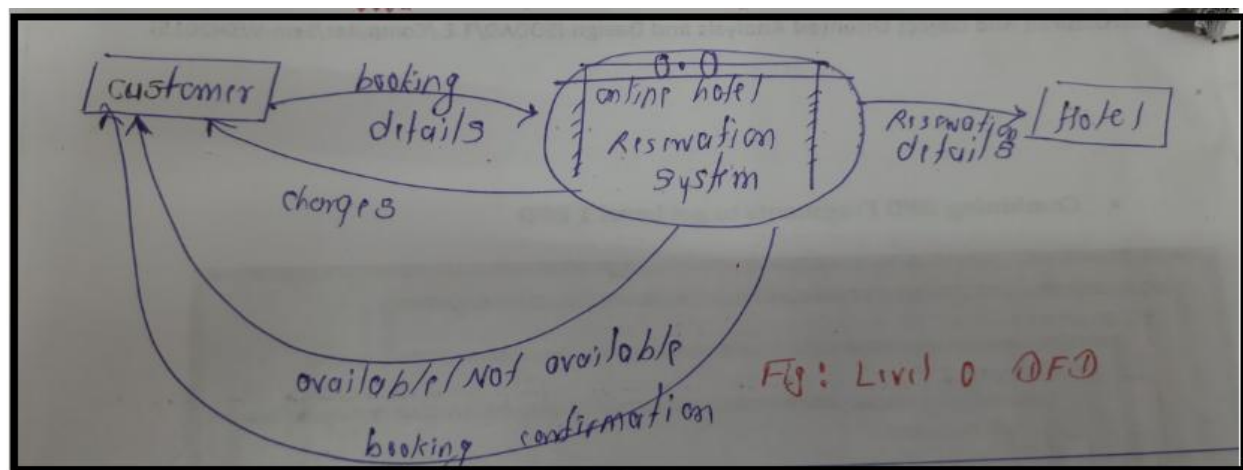 customer
booking
details
charges
0.0
online hotel
Reservation
system
Reservation
details
Hotel
available/Not available
booking confirmation
Fig: Level 0 DFD